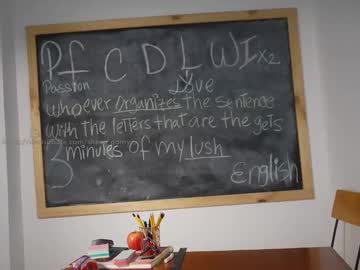 Pf C D L W I x2
Passion Love
whoever organizes the sentence
with the letters that are the gets
3 minutes of my lush
English